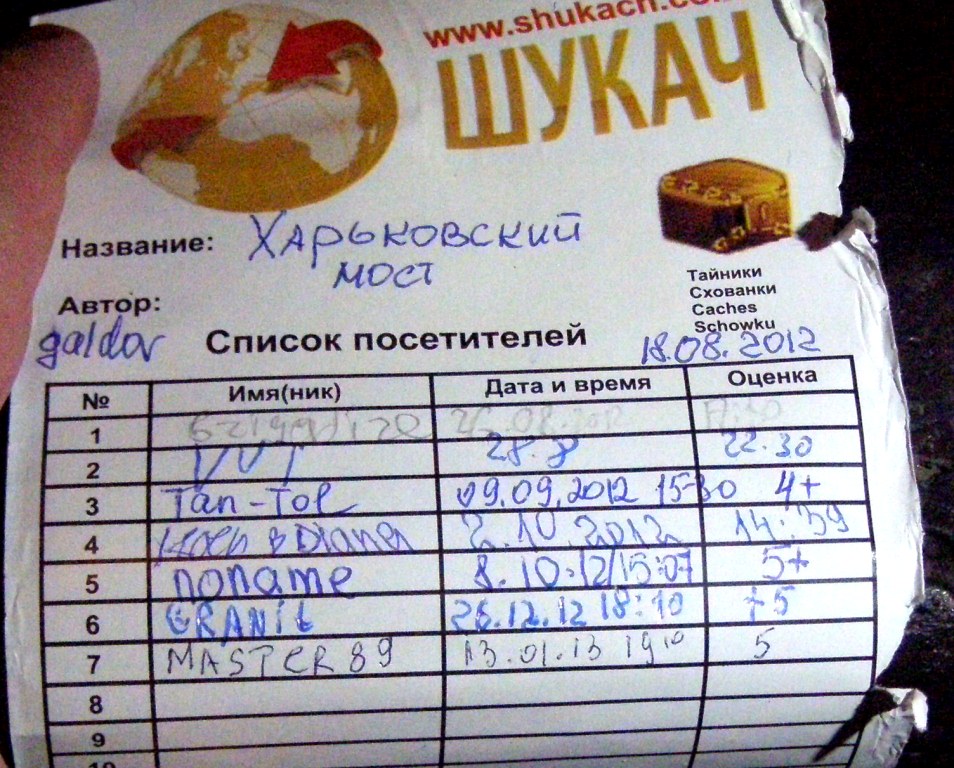 www.shukach.co
ШУКАЧ
Название: Харьковский
мост
Тайники
Схованки
Caches
Schowku
Автор:
galdor
Список посетителей
18.08.2012
№ Имя(ник) Дата и время Оценка
1
2 VVT 28.8 22.30
3 Tan-Tol 09.09.2012 15-30 4+
4 Diana 2.10.2012 14:39
5 noname 8.10.12/15:07 5+
6 GRANIt 26.12.12 18:10 +5
7 MASTER89 13.01.13 19 10 5
8
9
10